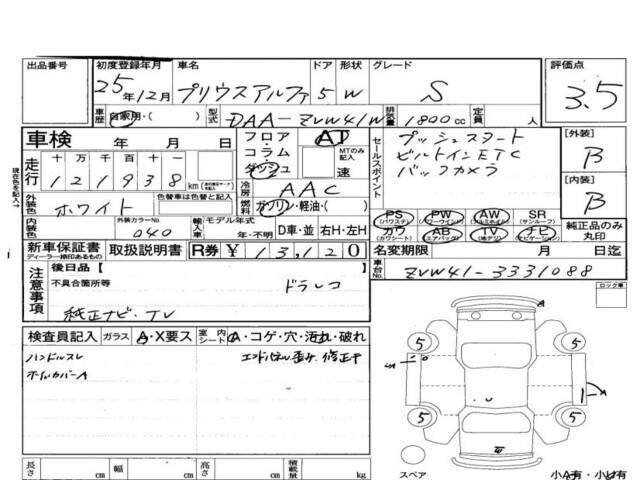 出品番号 初度登録年月 車名 ドア 形状 グレード 評価点
25年12月 プリウスアルファ 5 W S 3.5
車歴 自家用・( ) 型式 DAA-ZVW41W 排気量 1800cc 定員 人
車検 年 月 日 フロア・コラム・ダッシュ AT MTのみ記入 速
セールスポイント プッシュスタート
ビルトインETC
バックカメラ
[外装] B
[内装] B
現在色を記入→
走行 十万千百十一
121938km
冷房 AAC
外装色 ホワイト 色替車は色替と記入 燃料 ガソリン・軽油・( )
内装色 外装カラーNo. 040 輸入車 モデル年式 年・不明 D車・並 右H・左H
PS (パワステ) PW (パワーウインド) AW (アルミホイル) SR (サンルーフ)
カワ (カワシート) AB (エアバッグ) TV (地デジ) ナビ (ナビゲーション)
純正品のみ丸印
新車保証書 ディーラー捺印あるもの 取扱説明書 R券 ¥13,120
名変期限 月 日迄
車台No. ZVW41-3331088
注意事項 後日品 [ ]
不具合箇所等 ドラレコ
純正ナビ・TV
ロック車
検査員記入 ガラス A・X要ス 室内シート A・コゲ・穴・汚れ・破れ
ハンドルスレ エンドパネル歪み、修正干
ホイルカバーA
A
5 5
5 5
スペア
小A有・小U有
長さ cm 幅 cm 高さ cm 積載量 kg